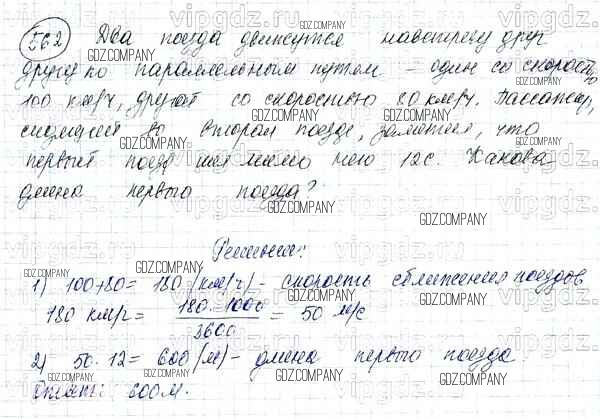 562 Два поезда движутся навстречу друг
другу по параллельным путям - один со скорость
100 км/ч, другой со скоростью 80 км/ч. Пассажир,
сидящий во втором поезде, заметил, что
первый поезд шел мимо него 12 с. Какова
длина первого поезда?
Решение:
1) 100+80 = 180 (км/ч) - скорость сближения поездов
180 км/ч = 180·1000/3600 = 50 м/с
2) 50·12 = 600 (м) - длина первого поезда.
Ответ: 600 м.
vipgdz.ru
GDZ.COMPANY